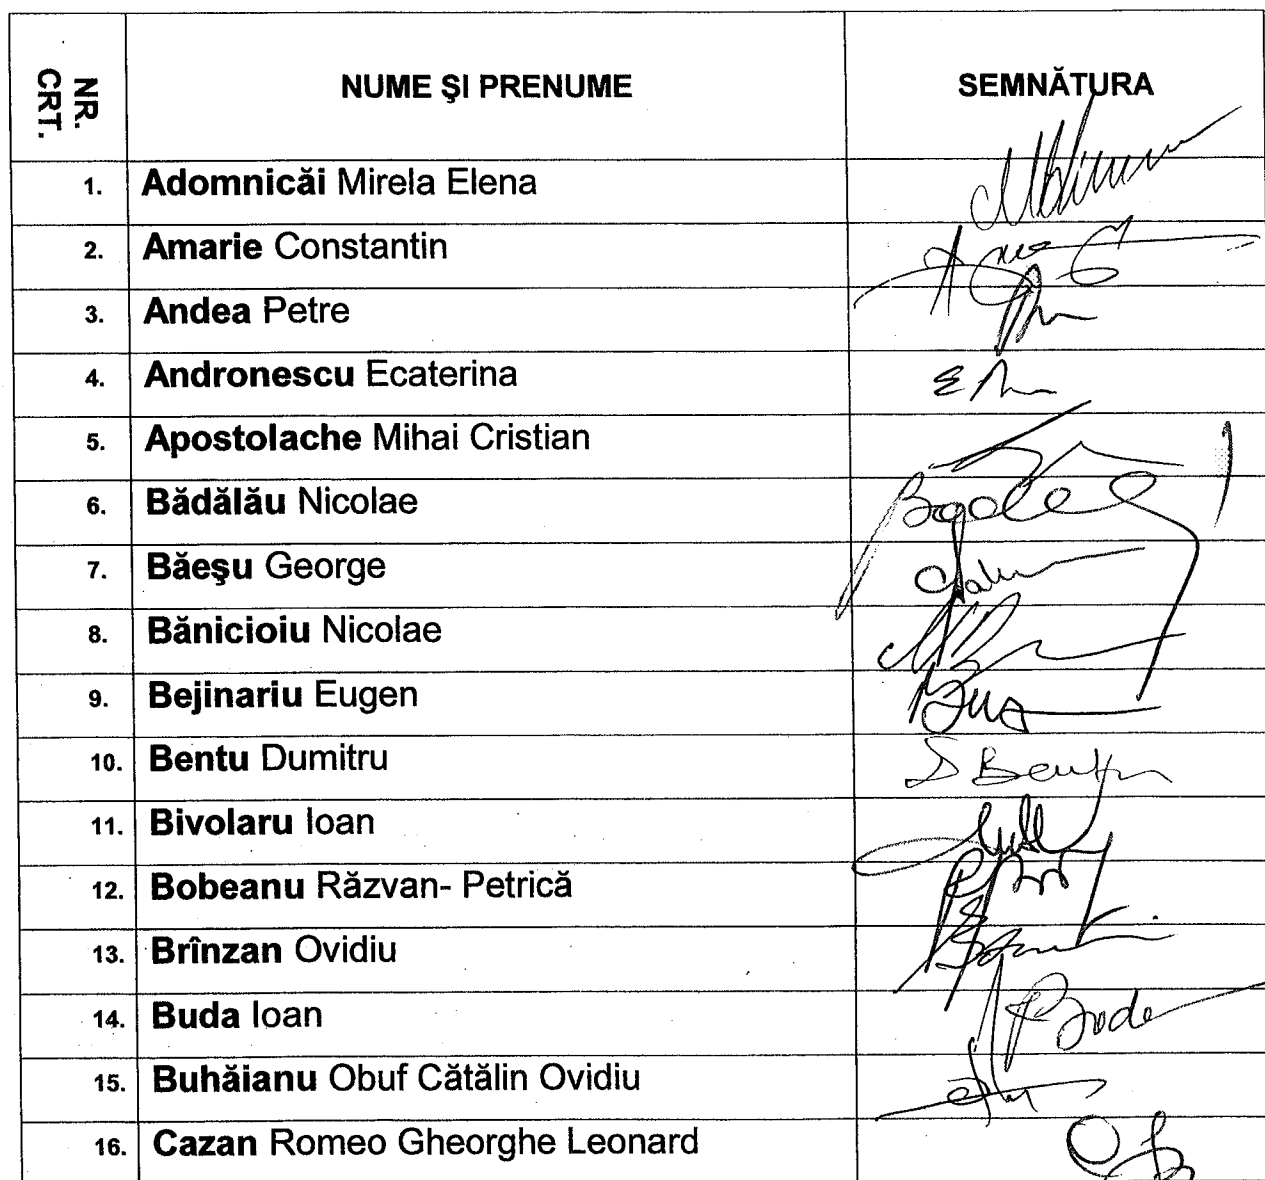 NR. CRT.
NUME ŞI PRENUME
SEMNĂTURA
1. Adomnicăi Mirela Elena
2. Amarie Constantin
3. Andea Petre
4. Andronescu Ecaterina
5. Apostolache Mihai Cristian
6. Bădălău Nicolae
7. Băeşu George
8. Bănicioiu Nicolae
9. Bejinariu Eugen
10. Bentu Dumitru
11. Bivolaru Ioan
12. Bobeanu Răzvan- Petrică
13. Brînzan Ovidiu
14. Buda Ioan
15. Buhăianu Obuf Cătălin Ovidiu
16. Cazan Romeo Gheorghe Leonard